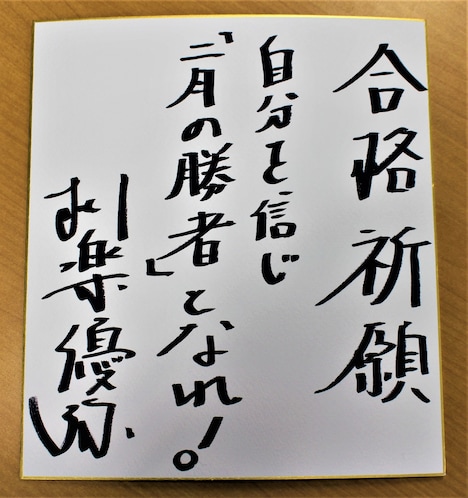 合格祈願
自分を信じ
「二月の勝者」となれ!。
設楽優弥